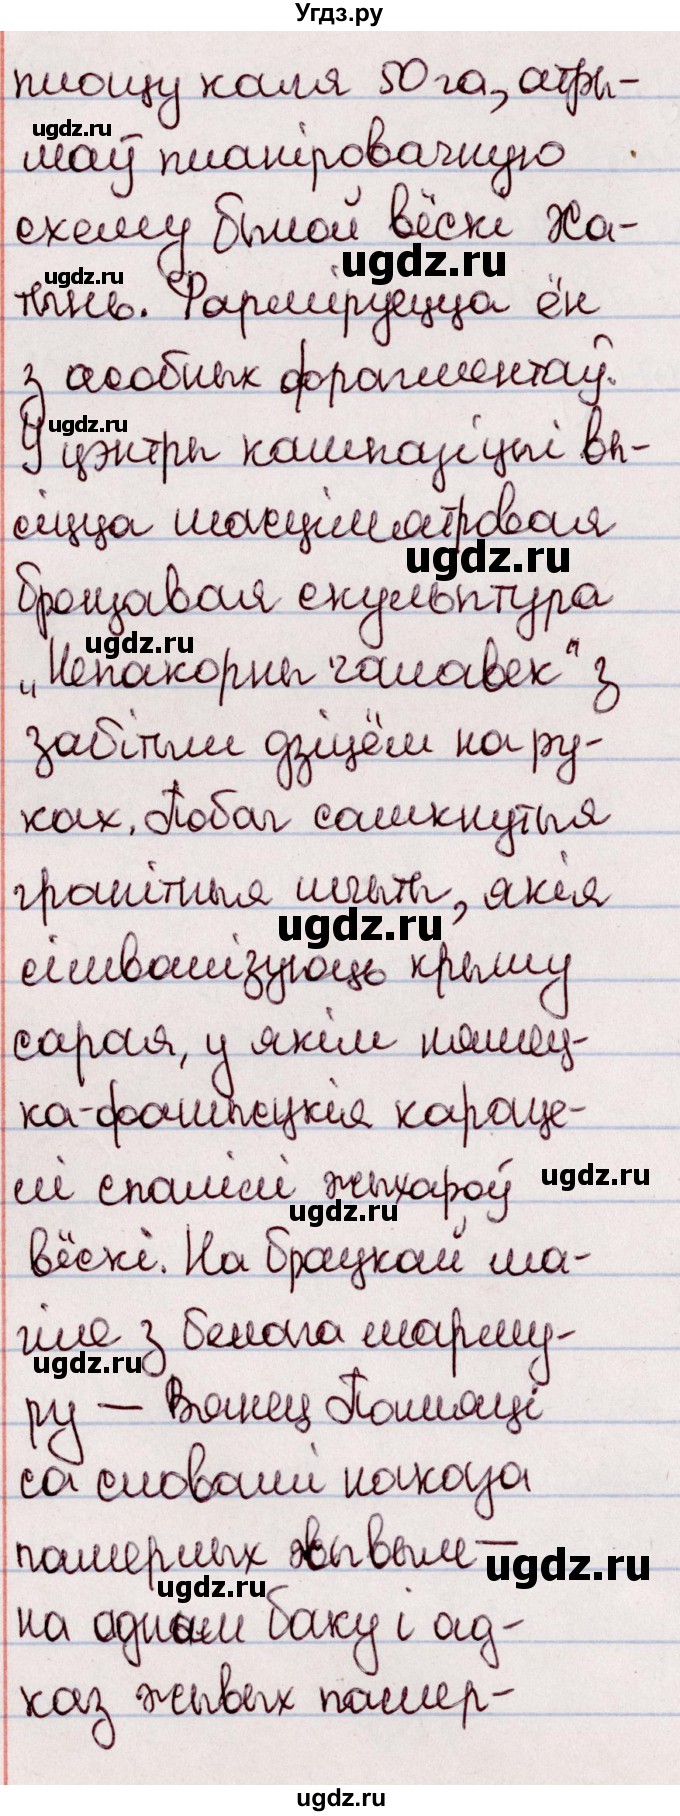 Угдз.ру
плошчу каля 50 га, атры-
маў планіровачную
схему былой вёскі Ха-
тынь. Фарміруецца ён
з асобных фрагментаў.
У цэнтры кампазіцыі вы-
сіцца шасціметровая
бронзавая скульптура
„Непакорны чалавек“ з
забітым дзіцём на ру-
ках. Побач самкнутыя
гранітныя пліты, якія
сімвалізуюць крышу
сарая, у якім нямец-
ка-фашысцкія караце-
лі спалілі жыхароў
вёскі. На брацкай ма-
гіле з белага марму-
ру — Вянец Памяці
са словамі наказа
памерлых жывым —
на адным баку і ад-
каз жывых памер-
ugdz.ru
ugdz.ru
ugdz.ru
ugdz.ru
ugdz.ru
ugdz.ru
ugdz.ru
ugdz.ru
ugdz.ru
ugdz.ru
ugdz.ru
ugdz.ru
ugdz.ru